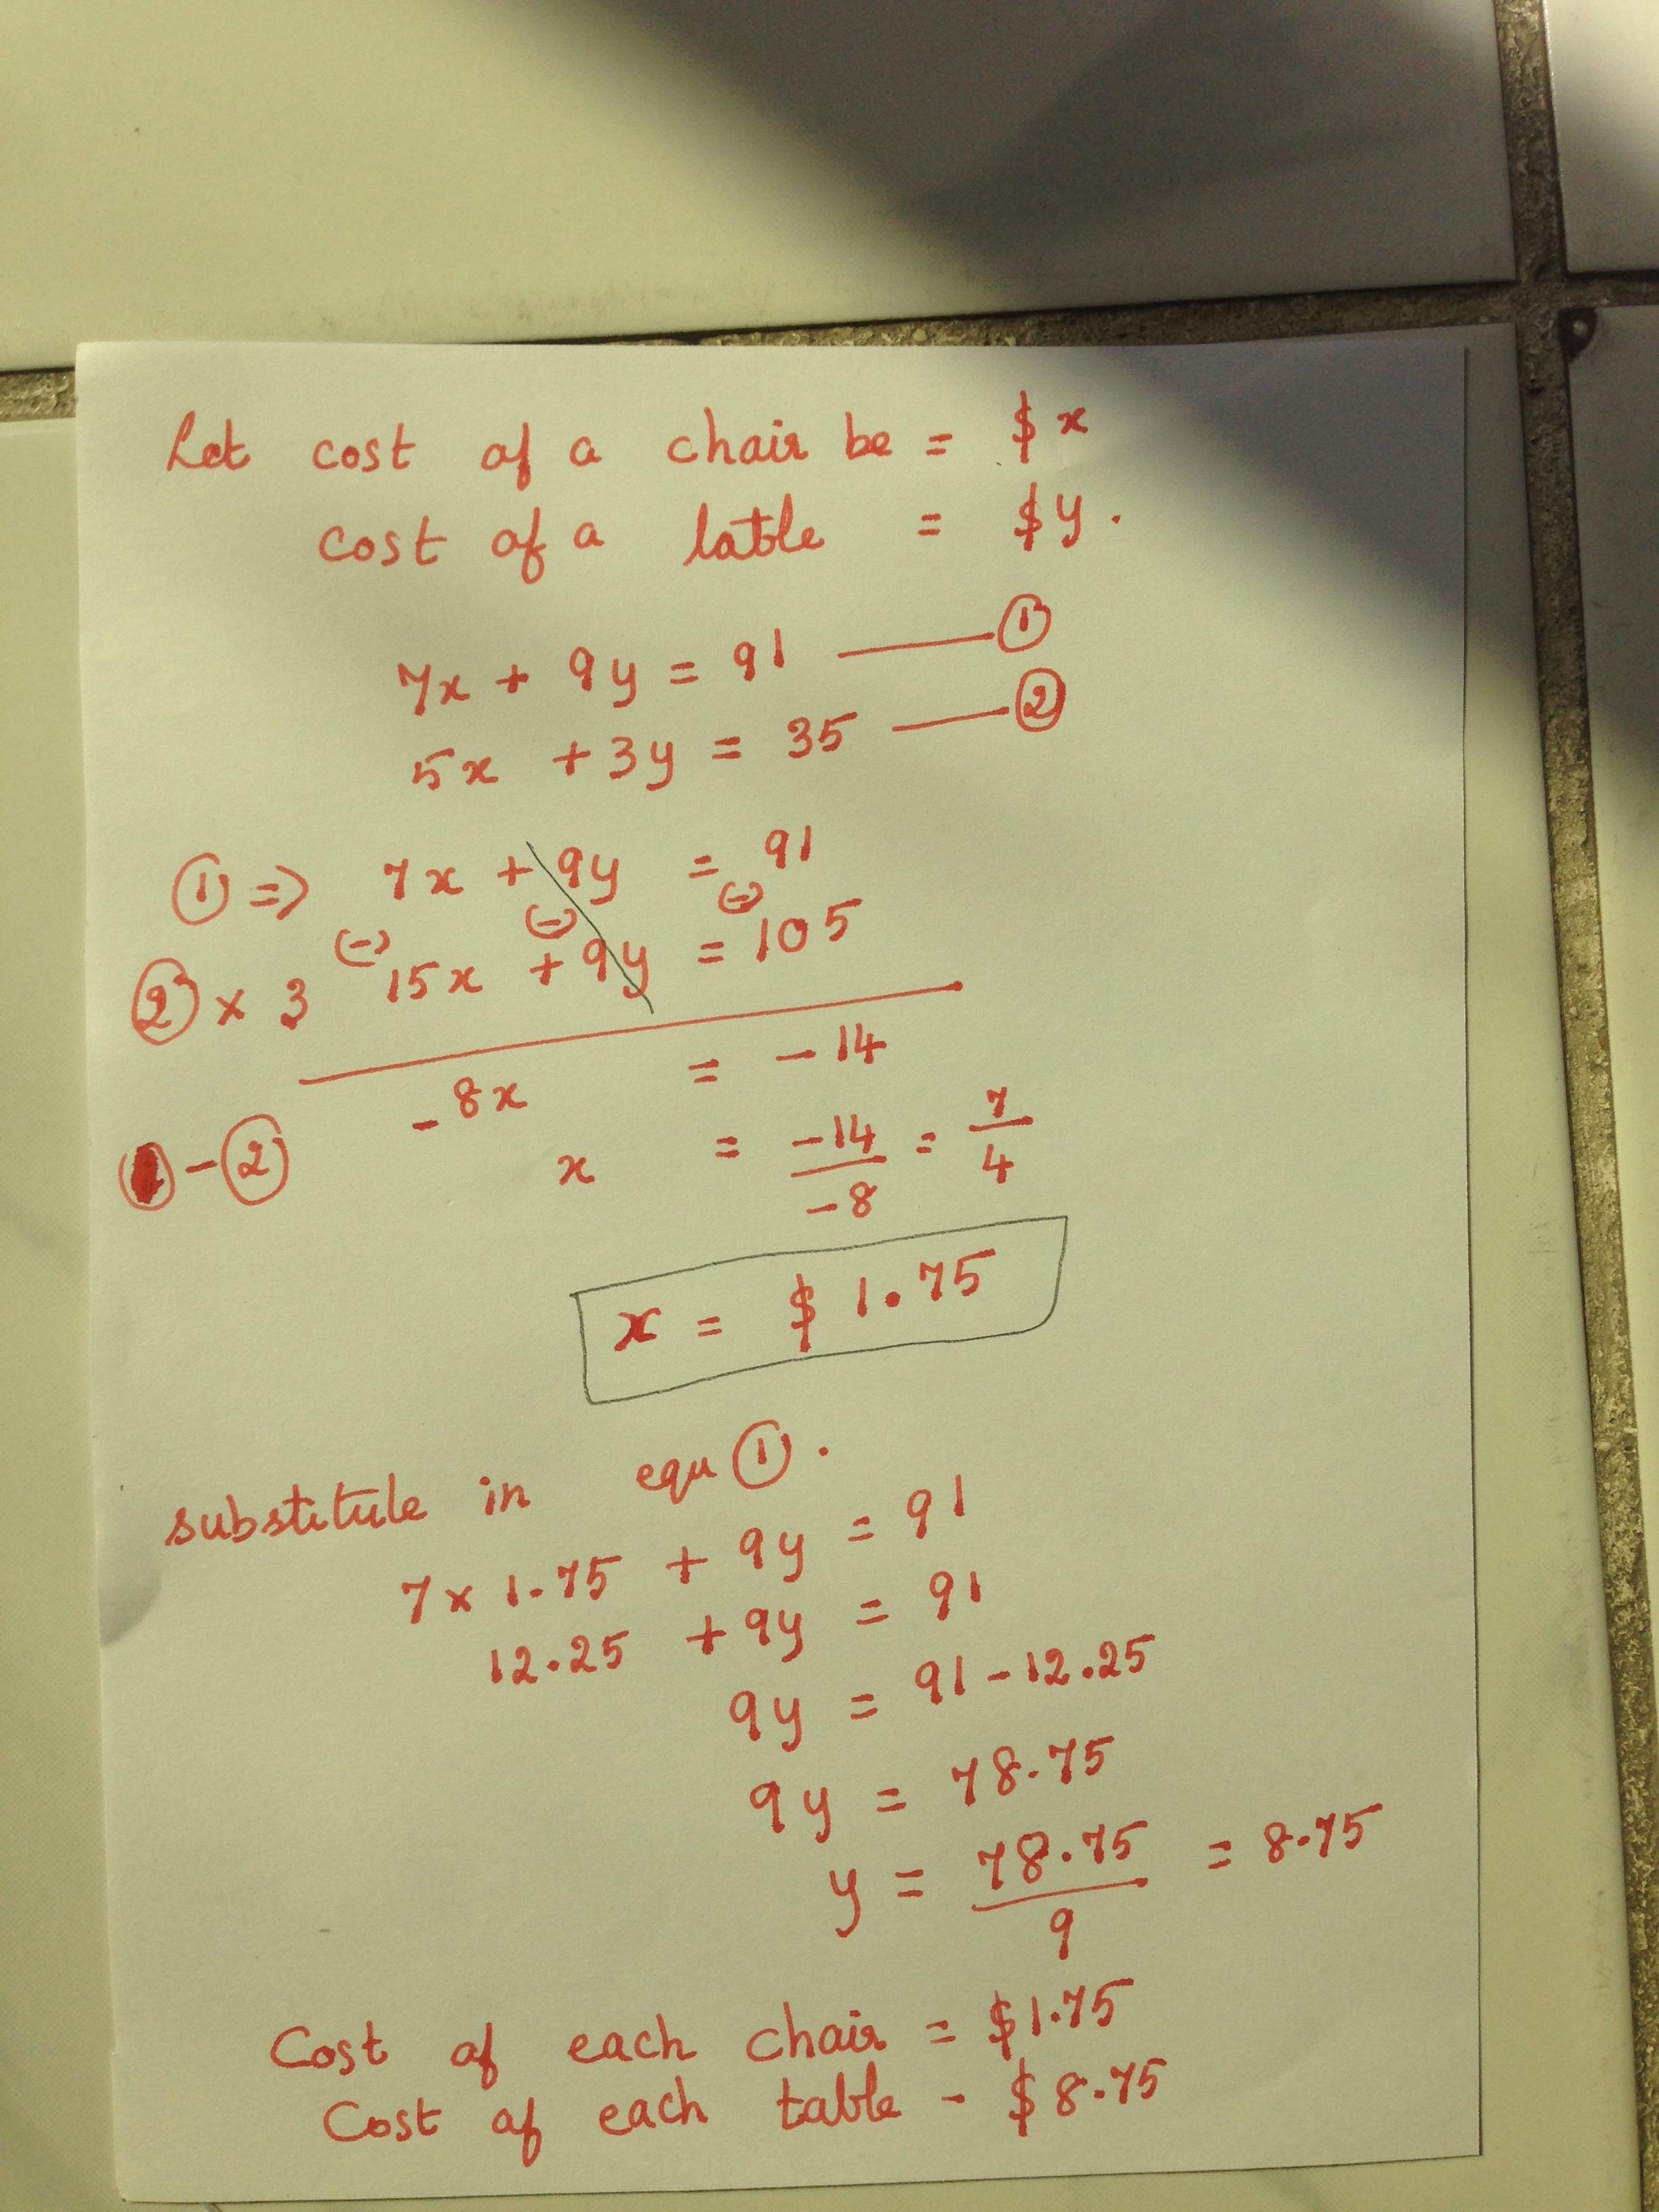 Let cost of a chair be = $x
cost of a latble = $y.
7x + 9y = 91 —— ①
5x + 3y = 35 —— ②
① => 7x + 9y = 91
(-) (-) (-)
② x 3 15x + 9y = 105
-8x = -14
- ② x = -14/-8 = 7/4
x = $1.75
substitute in equ ①.
7 x 1.75 + 9y = 91
12.25 + 9y = 91
9y = 91 - 12.25
9y = 78.75
y = 78.75/9 = 8.75
Cost of each chair = $1.75
Cost of each table - $8.75